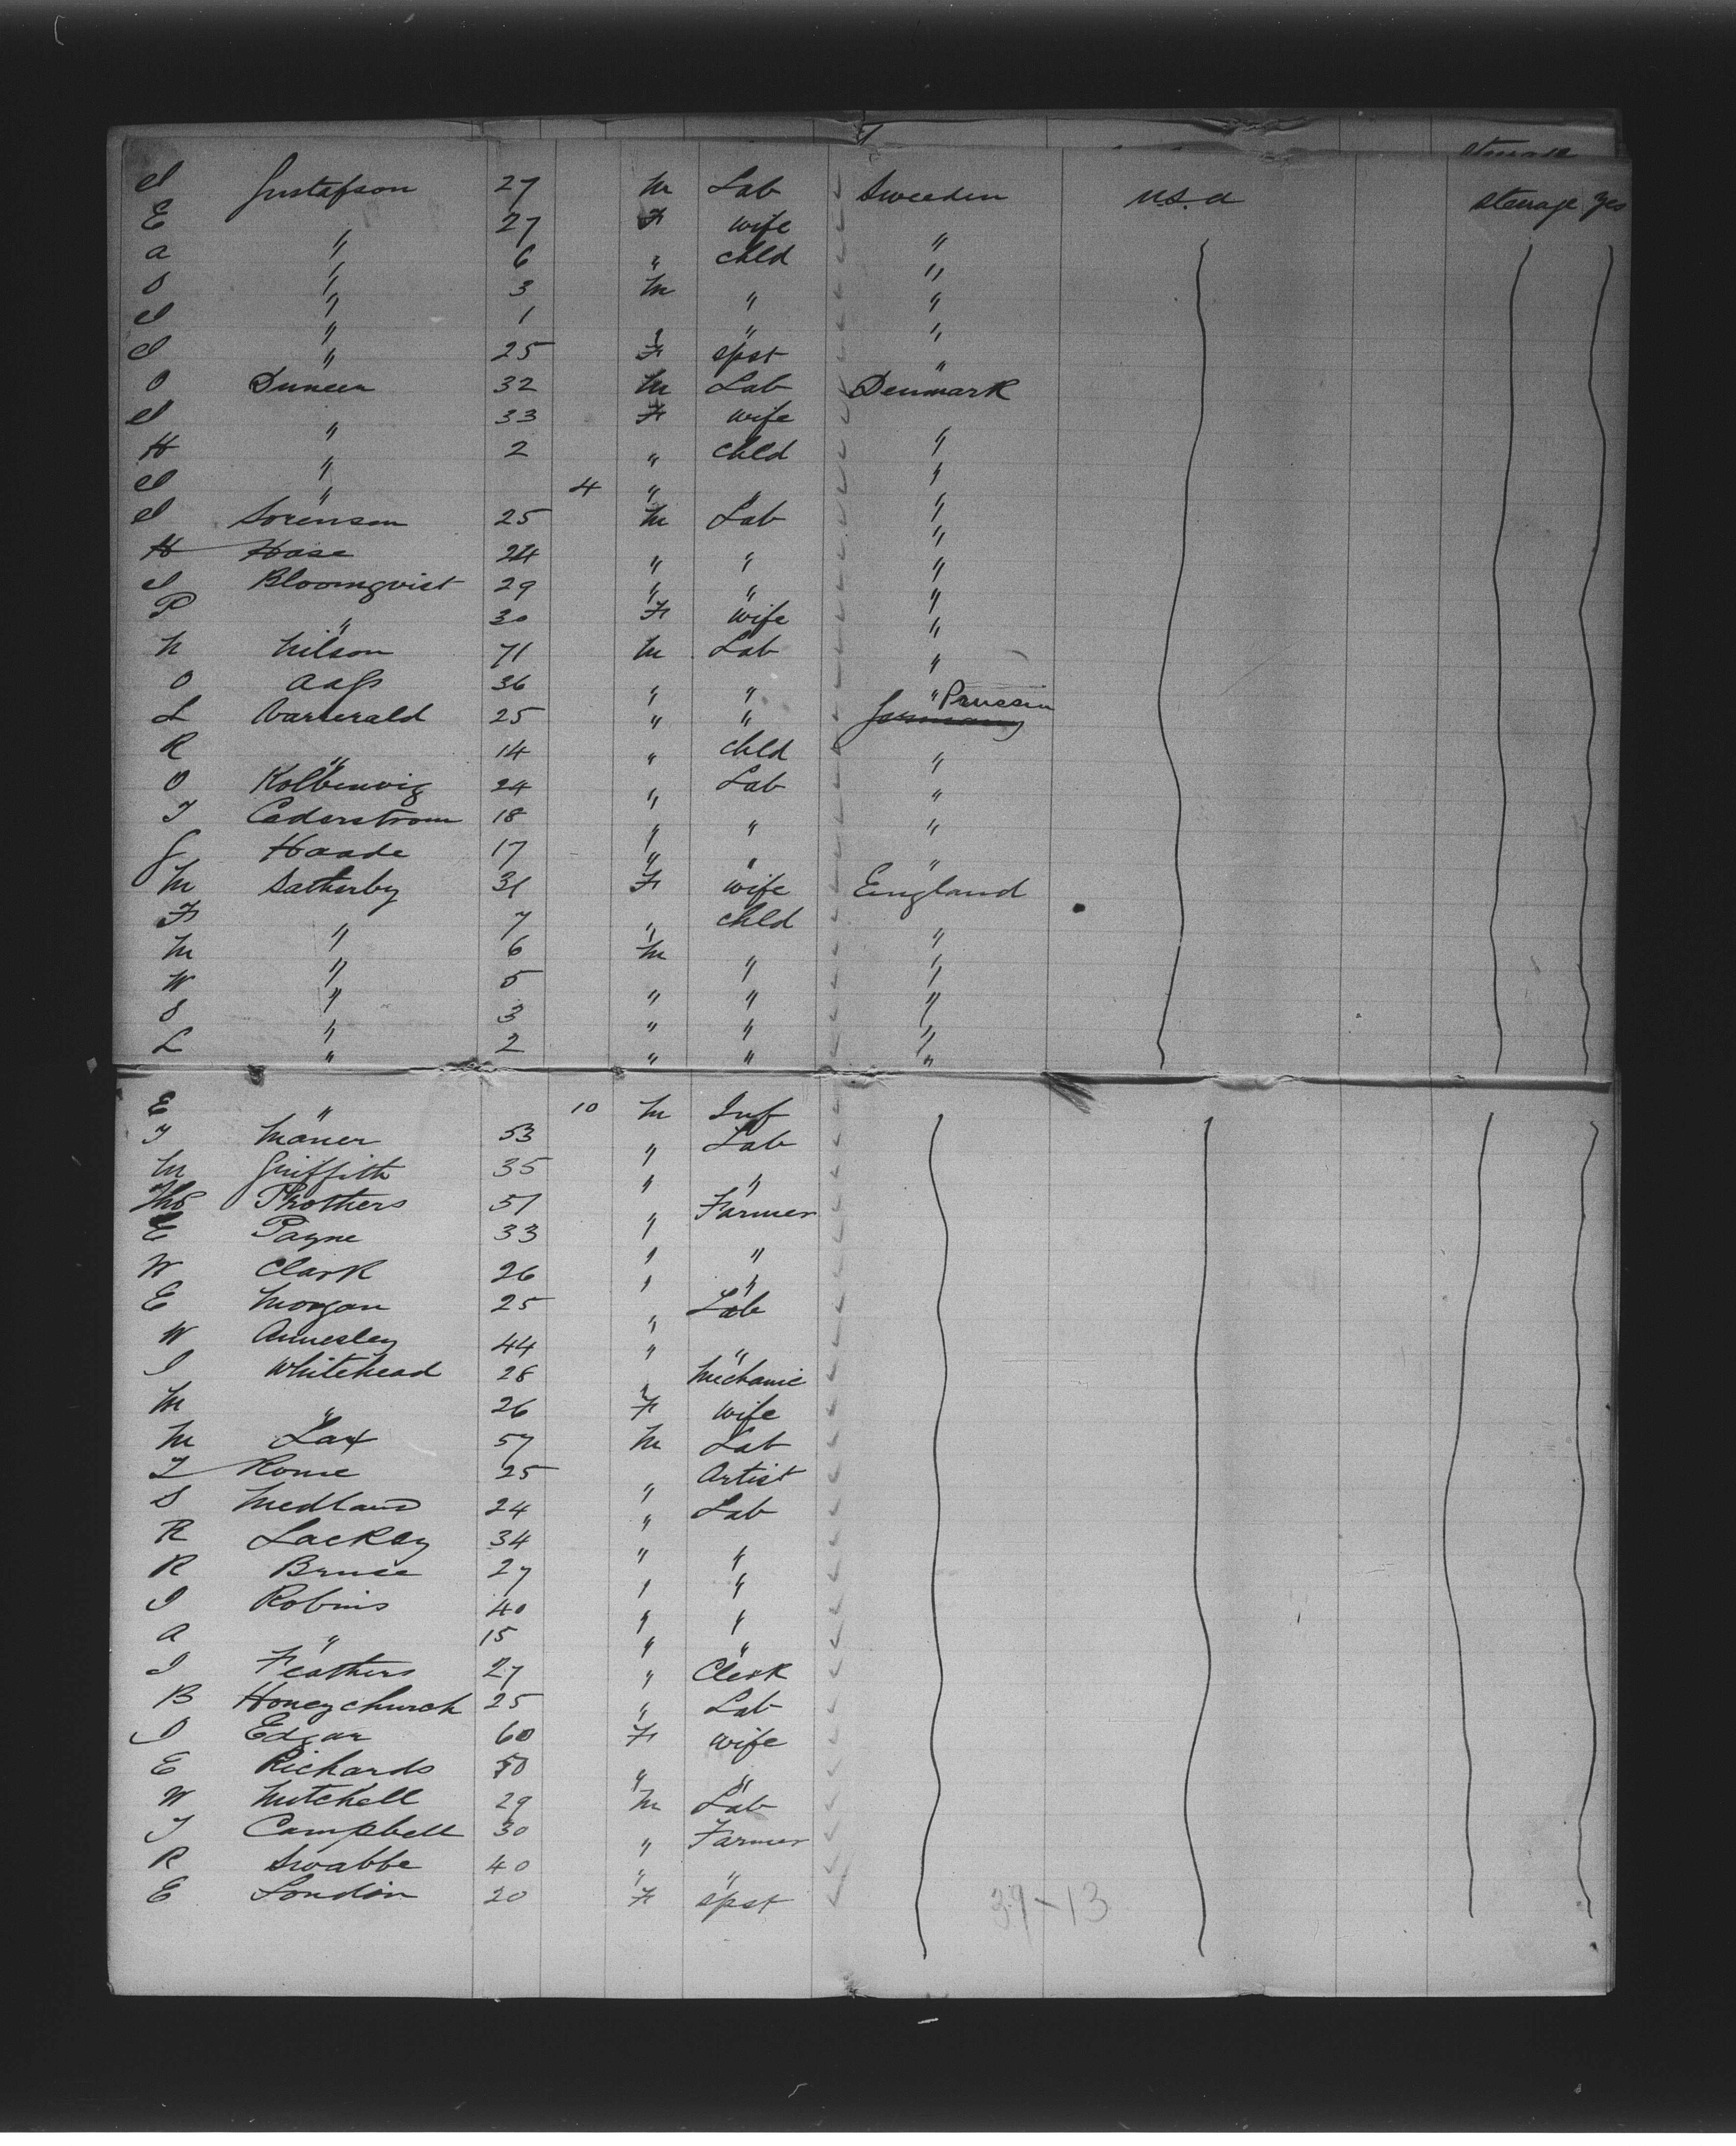 steerage
J Gustafson 27 M Lab Sweeden U.S.A steerage yes
E " 27 F wife "
A " 6 " chld "
O " 3 M " "
J " 1 " " "
J " 25 F spst "
O Duneen 32 M Lab Denmark
J " 33 F wife "
H " 2 " chld "
J " 4 " " "
J Sorenson 25 M Lab "
H Hase 24 " " "
J Bloomqvist 29 " " "
P " 30 F wife "
N Nilson 71 M Lab "
O 36 " " "
L 25 " " Germany Prussia
R " 14 " chld "
O Kolbenvig 24 " Lab "
T Cederstrom 18 " " "
G Haade 17 " " "
M Satherby 31 F wife England
F " 7 " chld "
M " 6 M " "
W " 5 " " "
S " 3 " " "
L " 2 " " "
E " 10 M Inf
T Maner 53 " Lab
M Griffith 35 " "
Thos Prothers 51 " Farmer
E Payne 33 " "
W Clark 26 " "
E Morgan 25 " Lab
W Annesley 44 " "
J Whitehead 28 " Mechanic
M " 26 F wife
M Lax 57 M Lab
I Rome 25 " Artist
S Medland 24 " Lab
R Lackey 34 " "
R Bruce 27 " "
J Robins 40 " "
A " 15 " "
J Feathers 27 " Clerk
B Honeychurch 25 " Lab
J Edgar 60 F wife
E Richards 50 " "
W Mitchell 29 M Lab
T Campbell 30 " Farmer
R Swabbe 40 " "
E London 20 F spst
39-13